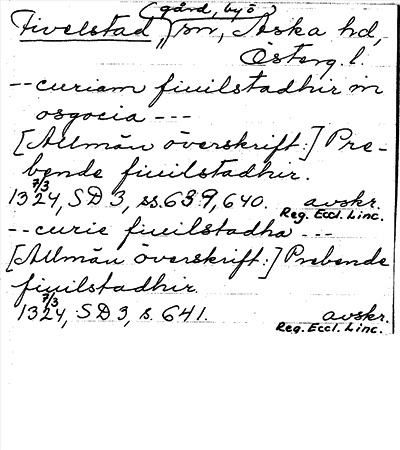 (gård, by ö)
Fivelstad, sn, Aska hd,
Österg. l.
-- curiam fiuilstadhir in
osgocia ---
[Allmän överskrift:] Pre-
bende fiuilstadhir.
7/3 1324, SD 3, ss. 639, 640. avskr.
Reg. Eccl. Linc.
-- curie fiuilstadha ---
[Allmän överskrift:] Prebende
fiuilstadhir.
7/3 1324, SD 3, s. 641. avskr.
Reg. Eccl. Linc.